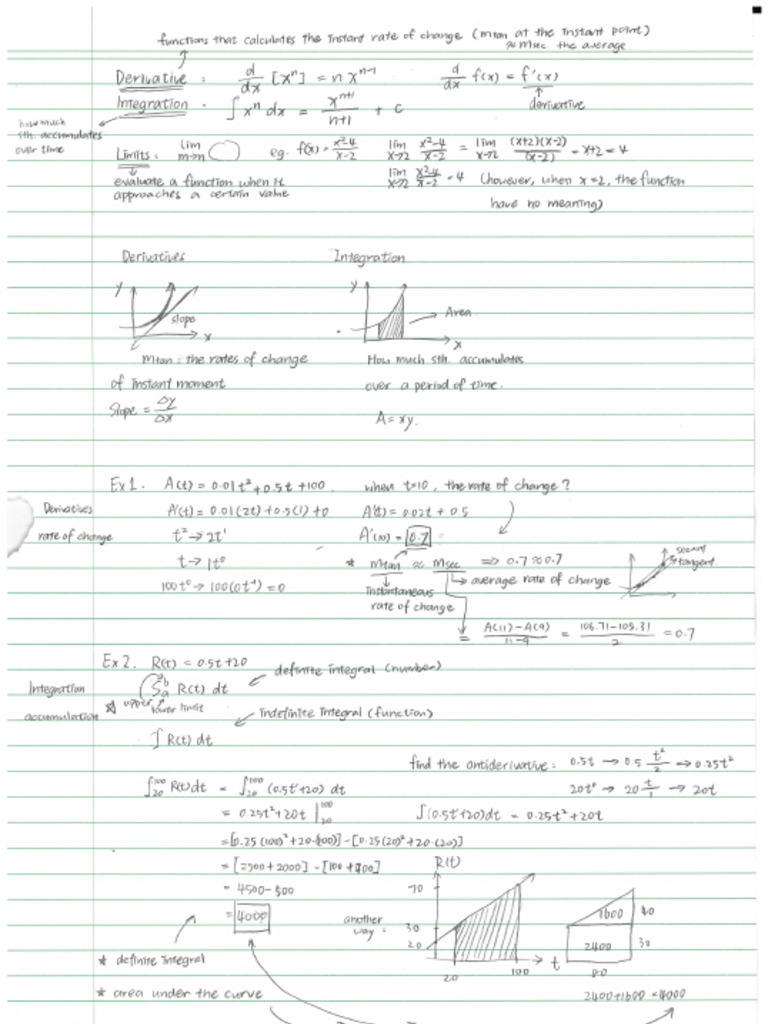 functions that calculates the instant rate of change (mtan at the instant point)
≈ msec the average
Derivative : d/dx [xⁿ] = n xⁿ⁻¹ d/dx f(x) = f'(x)
derivative
Integration . ∫ xⁿ dx = xⁿ⁺¹/n+1 + c
how much
sth. accumulates
over time
Limits : lim m→n eg. f(x) = x²-4/x-2 lim x→2 x²-4/x-2 = lim x→2 (x+2)(x-2)/(x-2) = x+2 = 4
evaluate a function when it
approaches a certain value
lim x→2 x²-4/x-2 = 4 (however, when x=2, the function
have no meaning)
Derivatives Integration
y slope x
y Area x
mtan : the rates of change
of instant moment
Slope = Δy/Δx
How much sth. accumulates
over a period of time.
A = xy.
Ex 1. A(t) = 0.01t² + 0.5t + 100 when t=10, the rate of change ?
Derivatives
rate of change
A'(t) = 0.01(2t) + 0.5(1) + 0 A'(t) = 0.02t + 0.5
t² → 2t¹ A'(10) = 0.7
t → 1t⁰ * mtan ≈ msec ⇒ 0.7 ≈ 0.7
100t⁰ → 100(0t⁻¹) = 0
average rate of change
Instantaneous
rate of change
secant
tangent.
= A(11) - A(9)/11-9 = 106.71 - 105.31/2 = 0.7
Ex 2. R(t) = 0.5t + 20
Integration
accumulation
∫ₐᵇ R(t) dt definite integral (number)
* upper lower limit
indefinite integral (function)
∫ R(t) dt
find the antiderivative : 0.5t → 0.5 t²/2 → 0.25t²
20t⁰ → 20 t/1 → 20t
∫₂₀¹⁰⁰ R(t) dt = ∫₂₀¹⁰⁰ (0.5t + 20) dt
= 0.25t² + 20t |₂₀¹⁰⁰ ∫(0.5t + 20) dt = 0.25t² + 20t
= [0.25(100)² + 20·(100)] - [0.25(20)² + 20·(20)]
= [2500 + 2000] - [100 + 400]
= 4500 - 500
= 4000
another
way :
R(t)
70
30
20
20 100 t
1600 40
2400 30
80
* definite integral
* area under the curve
2400 + 1600 = 4000